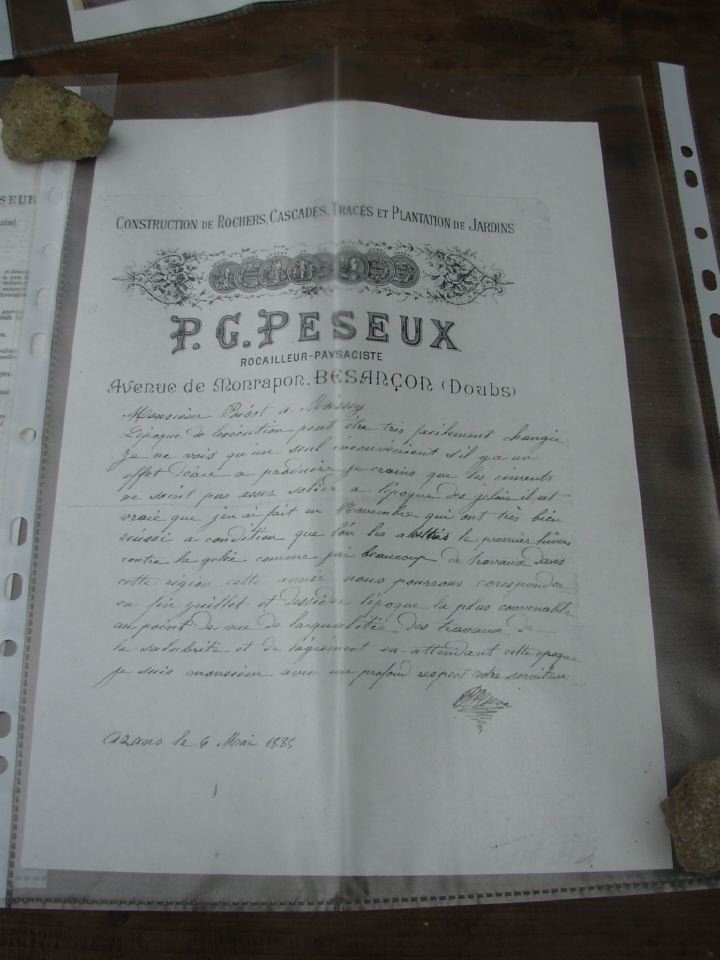 CONSTRUCTION DE ROCHERS, CASCADES, TRACÉS ET PLANTATION DE JARDINS
P. G. PESEUX
ROCAILLEUR-PAYSAGISTE
Avenue de Monrapon, BESANÇON (Doubs)
Monsieur Poisot a Moissey
L'époque de l'exécution peut être très facilement changée
Je ne vois qu'un seul inconvénient s'il y a un
effet d'eau a produire je crains que les ciments
ne soint pas asser solide a l'époque des gelées il est
vraie que j'en ai fait en Novembre qui ont très bien
réussi a condition que l'on les abrittes le premier hivers
contre la gelée comme jai beaucoup de travaux dans
cette région cette année nous pourrons corespondre
en fin juillet et desider l'époque la plus convenable
au point de vue de la qualitée des travaux de
la salubrité et de l'agrément en attendant cette époque
je suis monsieur avec un profond respect votre serviteur
PGPeseux
Azans le 6 Mai 1885
SEUR